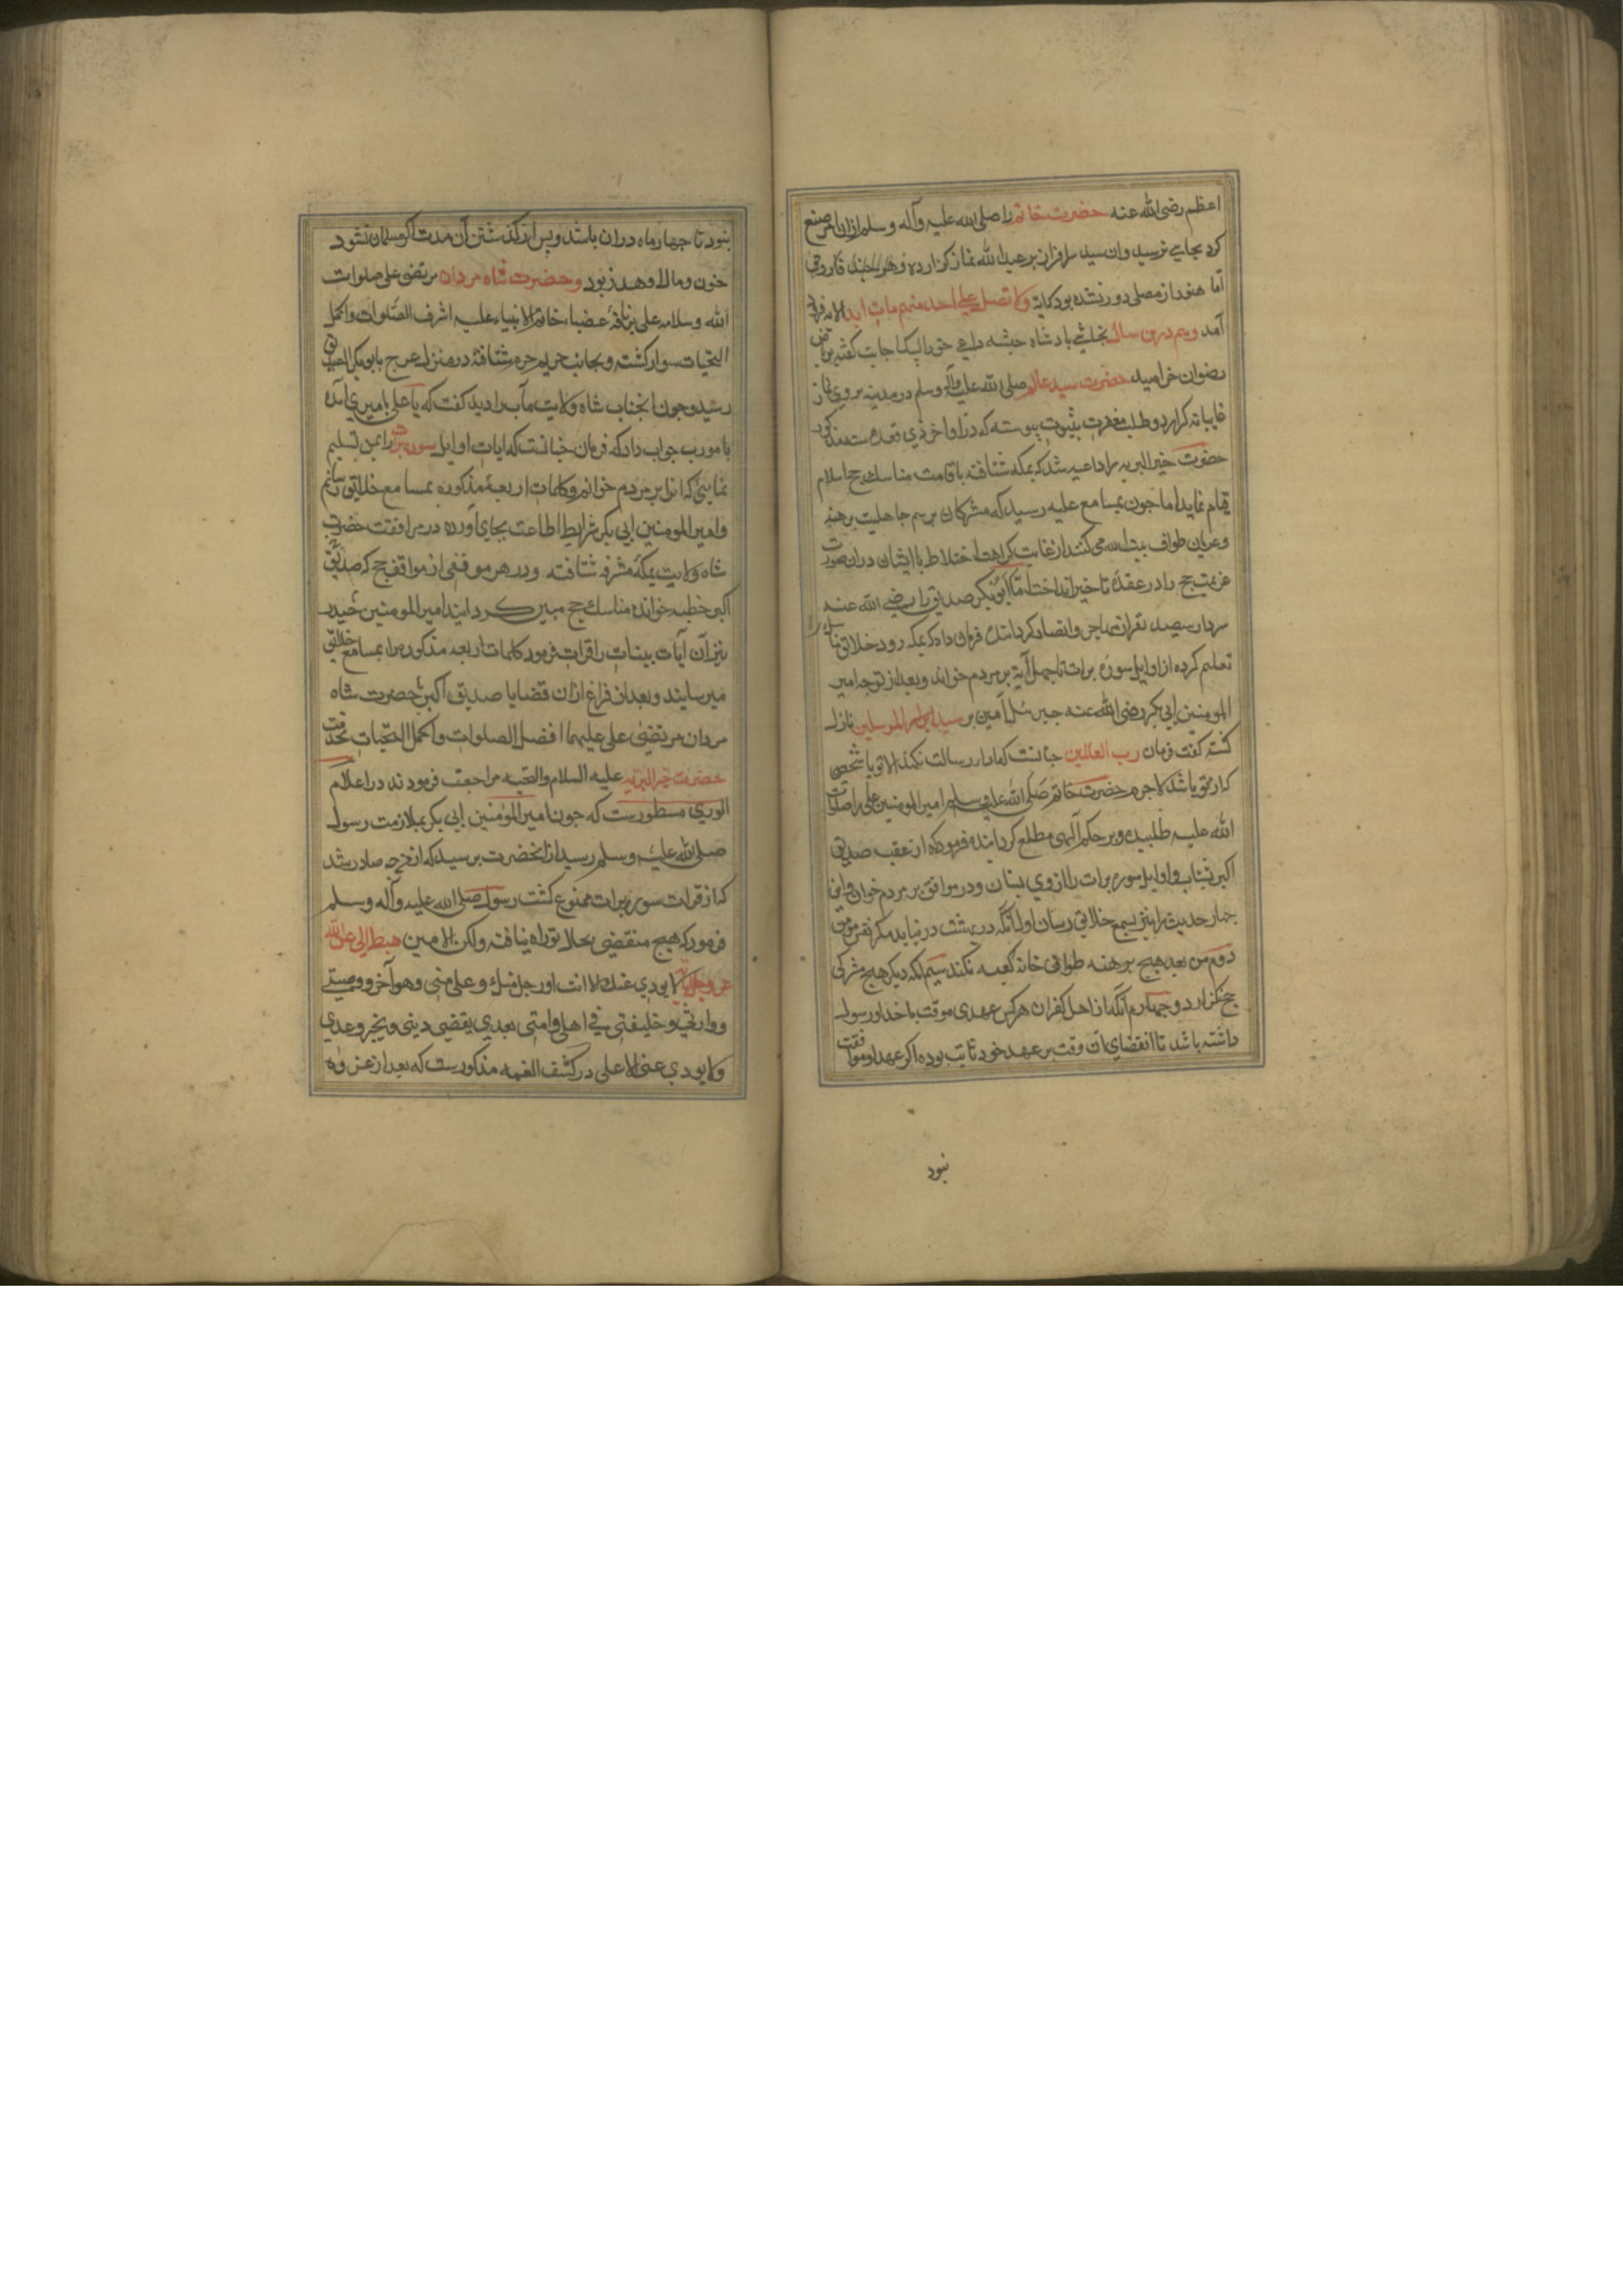 اعظم رضی الله عنه حضرت خاتم را صلی الله علیه وآله وسلم ازان امر منع
کرد بجایی نرسید وان سید سرافراز بر عبدالله نماز گزارده و هر چند فاروق
اما هنوز از مصلی دور نشده بود که آیة ولا تصل علی احد منهم مات ابدا الایه فرود
آمد وهم درین سال نجاشی پادشاه حبشه داعی حق را لبیک اجابت گفته بریاض
رضوان خرامید حضرت سید عالم صلی الله علیه وآله وسلم در مدینه بروی نماز
غایبانه گزارد و طلب مغفرت بثبوت پیوسته که در اواخر ذی قعده سنه مذکور
حضرت خیر البریه را داعیه شد که بمکه شتافته باقامت مناسک حج اسلام
قیام نماید اما چون بمسامع علیه رسید که مشرکان برسم جاهلیت برهنه
وعریان طواف بیت الله می کنند از غایت کراهت اختلاط با ایشان دران صورت
عزیمت حج را در عقده تاخیر انداخت اما ابوبکر صدیق را رضی الله عنه
سردار سیصد نفر از مهاجر وانصار گردانیده فرمان داد که بمکه رود خلایق را مناسک
تعلیم کرده از اوایل سوره برات تا چهل آیة بر مردم خواند وبعد از توجه امیر
المومنین ابی بکر رضی الله عنه جبرئیل امین بر سید ابرار المرسلین نازل
گشته گفت فرمان رب العالمین چنانست که ادار رسالت نکند الا تو یا شخصی
که از تو باشد لاجرم حضرت خاتم صلی الله علیه وسلم امیر المومنین علی را صلوات
الله علیه طلبیده وبر حکم الهی مطلع گردانیده فرمود که از عقب صدیق
اکبر بشتاب واوایل سوره برات را از وی بستان ودر مواقف بر مردم خوان واین
چهار حدیث را نیز بسمع خلایق رسان اول آنکه در بهشت در نیاید مگر نفس مومن
دوم من بعد هیچ برهنه طواف خانه کعبه نکند سیم انکه دیگر هیچ مشرکی
حج نگزارد وچهارم آنکه از اهل کفران هر کس عهدی موقت با خدا ورسول
داشته باشد تا انقضای ان وقت بر عهد خود ثابت بوده اگر عهد او موقت
نبود
نبود تا چهار ماه در امان باشد وپس از گذشتن آن مدت اگر مسلمان نشود
خون ومال او هدر بود وحضرت شاه مردان مرتضی علی صلوات
الله وسلامه علی بر ناقهٔ عضباء خاتم الانبیاء علیه اشرف الصلوات واکمل
التحیات سوار گشته وبجانب حریم حرم شتافته در منزل عرج بابوبکر الصدیق
رسید وچون آنجناب شاه ولایت مآب را دید گفت که یا علی با میری آمده
یا مور ب جواب داد که فرمان چنانست که ایات اوایل سوره برات را بمن تسلیم
نمایی که انرا بر مردم خوانم وکلمات اربعهٔ مذکوره بمسامع خلایق رسانم
وامیر المومنین ابی بکر شرایط اطاعت بجای آورده در مرافقت حضرت
شاه ولایت بمکهٔ مشرفه شتافته ودر هر موقفی از مواقف حج که صدیق
اکبر خطبه خوانده مناسک حج مبین گردانید امیر المومنین حیدر
نیز آن آیات بینات را قرات فرمود کلمات اربعه مذکوره را بمسامع خلایق
میرسانید وبعد از فراغ ازان قضایا صدیق اکبر بحضرت شاه
مردان مرتضی علی علیهما افضل الصلوات واکمل التحیات بخدمت
حضرت خیر البریه علیه السلام والتحیه مراجعت فرمودند در اعلام
الوری مسطورست که چون امیر المومنین ابی بکر بملازمت رسول
صلی الله علیه وسلم رسید از انحضرت پرسید که از من چه صادر شد
که از قرات سوره برات ممنوع گشت رسول صلی الله علیه وآله وسلم
فرمود که هیچ منقضی بحال تو راه نیافته ولکن الامین هبط الی عن الله
عز وجل بانه لا یودی عنک الا انت او رجل منک وعلی منی وهو اخی ووصیی
ووارثی وخلیفتی فی اهلی وامتی بعدی یقضی دینی وینجز وعدی
ولا یودی عنی الا علی در کشف الغمه مذکورست که بعد از غزوه